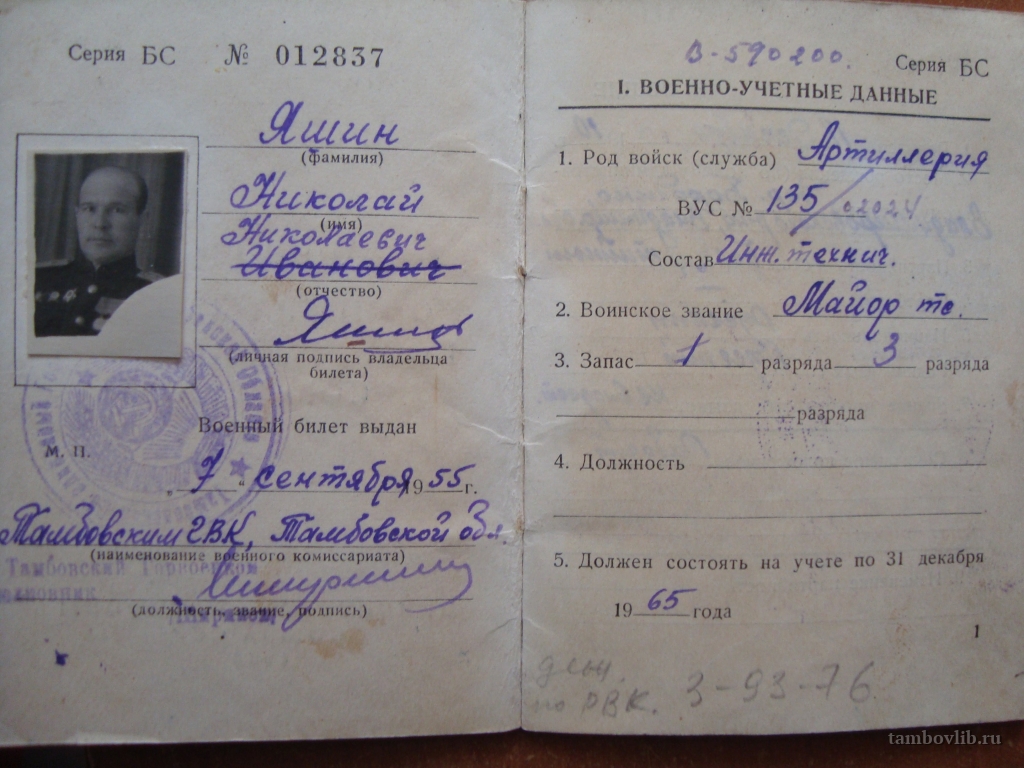 Серия БС № 012837
Яшин
(фамилия)
Николай
(имя)
Николаевич
Иванович
(отчество)
(личная подпись владельца
билета)
М. П.
Военный билет выдан
„ 7 “ сентября 1955 г.
Тамбовским ГВК, Тамбовской обл.
(наименование военного комиссариата)
Тамбовский Горвоенком
(должность, звание, подпись)
В-590200.
Серия БС
I. ВОЕННО-УЧЕТНЫЕ ДАННЫЕ
1. Род войск (служба) Артиллерия
ВУС № 135/02024
Состав Инж. технич.
2. Воинское звание Майор тс.
3. Запас 1 разряда 3 разряда
разряда
4. Должность
5. Должен состоять на учете по 31 декабря
19 65 года
1
по РВК. 3-93-76
tambovlib.ru